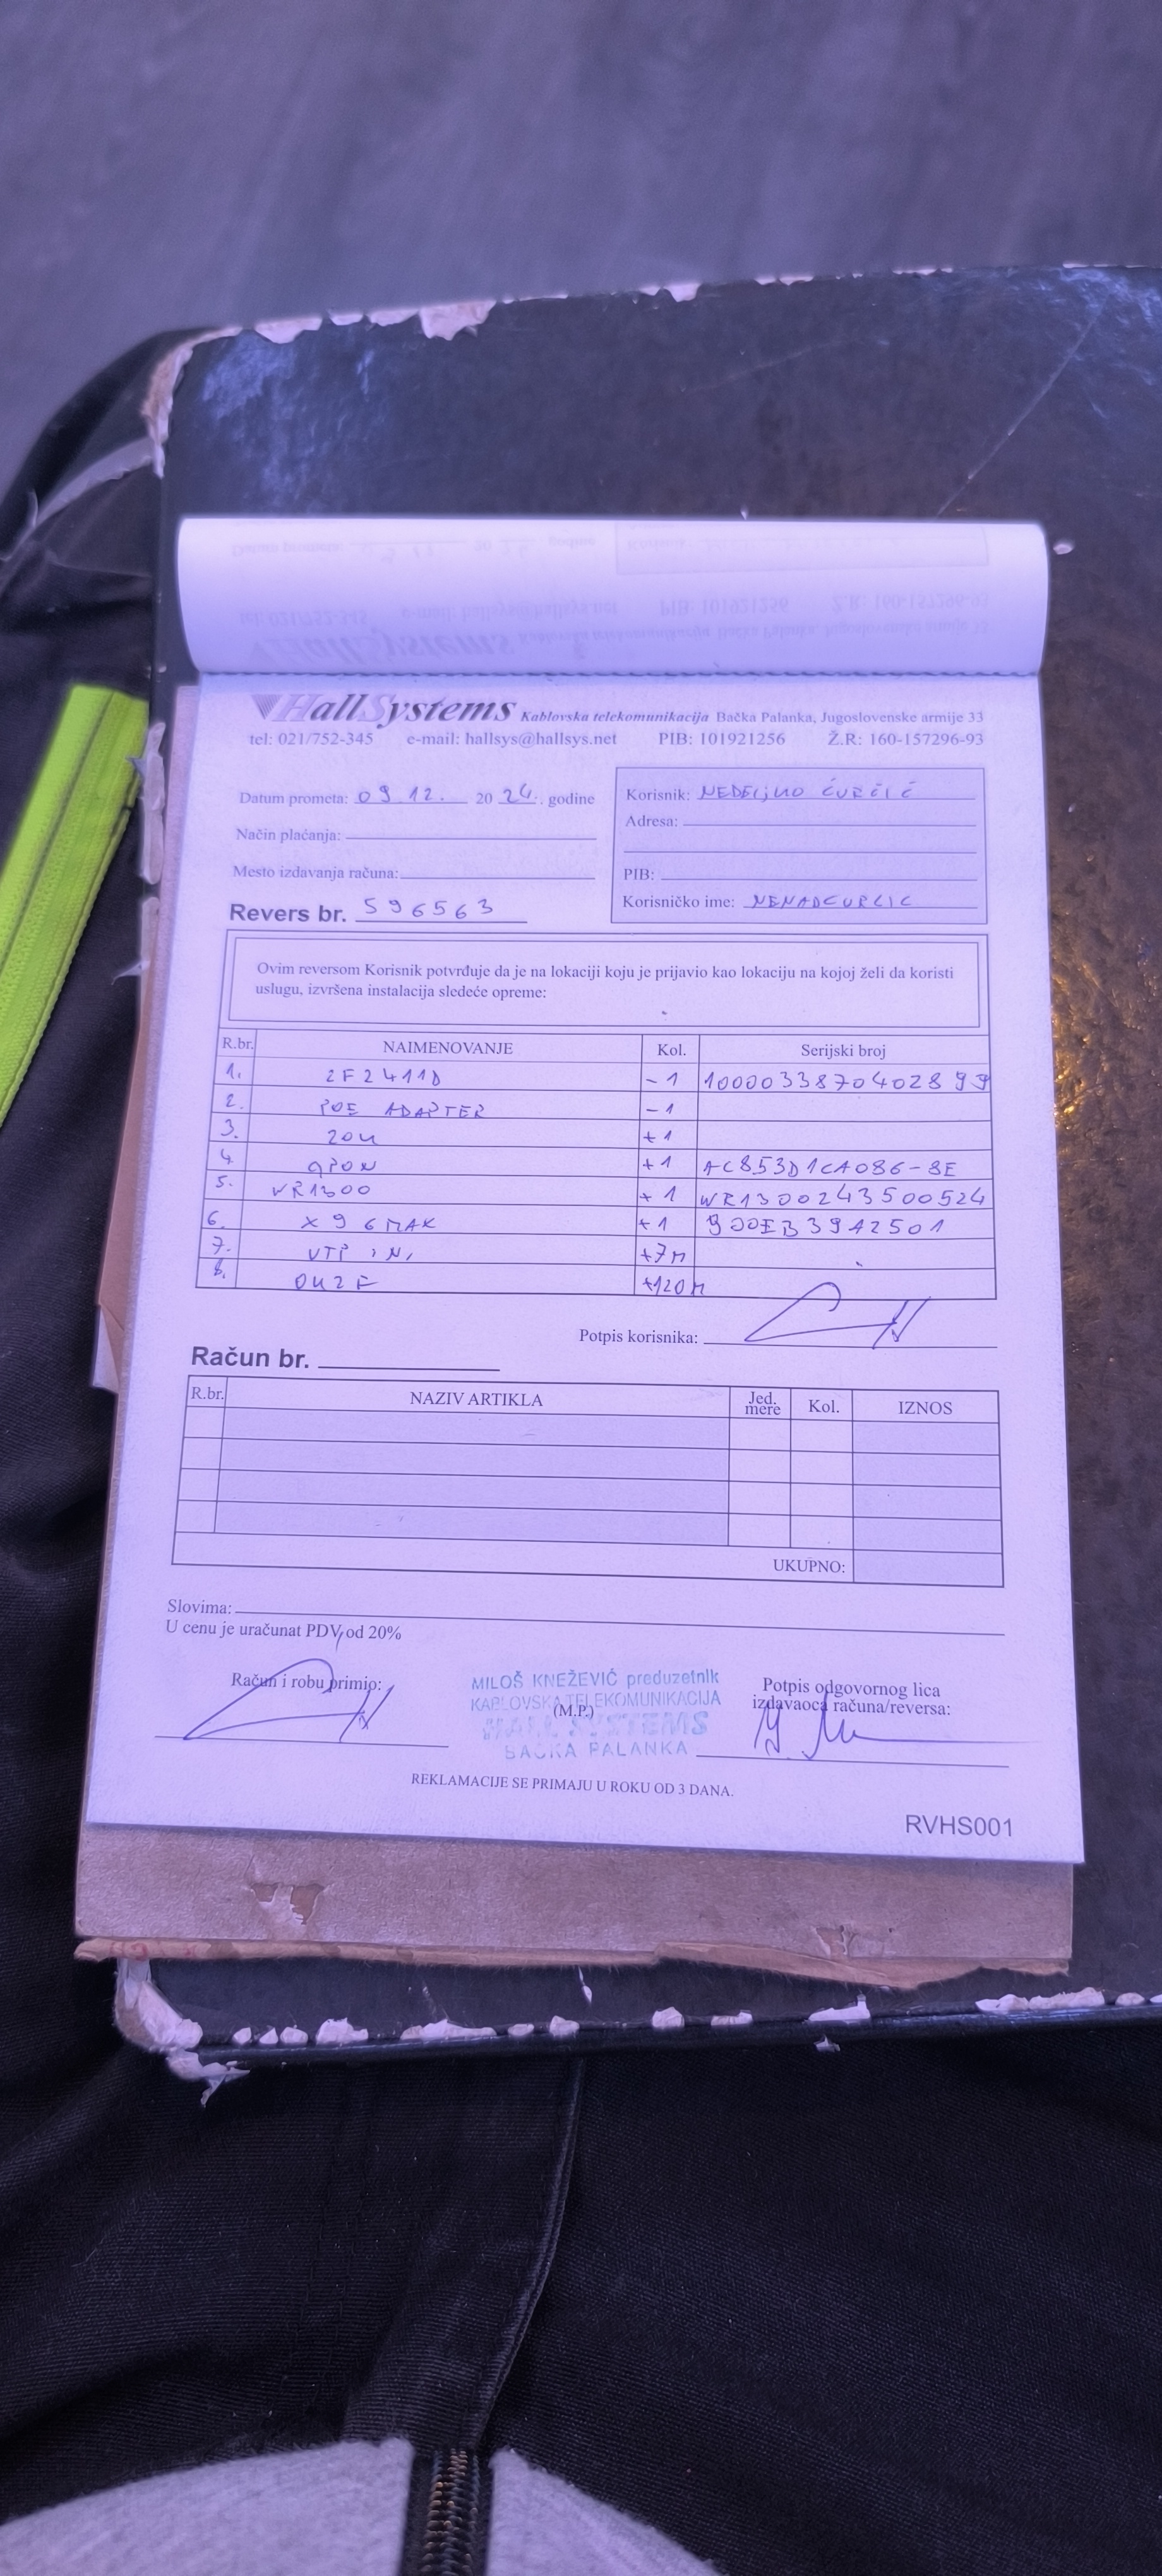 HallSystems Kablovska telekomunikacija Bačka Palanka, Jugoslovenske armije 33
tel: 021/752-345 e-mail: hallsys@hallsys.net PIB: 101921256 Ž.R: 160-157296-93
Datum prometa: 09.12. 20 24. godine
Korisnik: NEDELJKO ĆURČIĆ
Način plaćanja:
Adresa:
Mesto izdavanja računa:
PIB:
Revers br. 596563
Korisničko ime: NENADCURCIC
Ovim reversom Korisnik potvrđuje da je na lokaciji koju je prijavio kao lokaciju na kojoj želi da koristi
uslugu, izvršena instalacija sledeće opreme:
R.br. NAIMENOVANJE Kol. Serijski broj
1. 2F2411D -1 1000033870402899
2. POE ADAPTER -1
3. ZOK +1
4. GPON +1 AC853D1CA086-8E
5. WR1300 +1 WR1300243500524
6. X96MAX +1
7. UTP IN, +7M
8. OK2F +120M
Potpis korisnika:
Račun br.
R.br. NAZIV ARTIKLA Jed. mere Kol. IZNOS
UKUPNO:
Slovima:
U cenu je uračunat PDV od 20%
Račun i robu primio:
MILOŠ KNEŽEVIĆ preduzetnik
KABLOVSKA TELEKOMUNIKACIJA
(M.P.)
HALL SYSTEMS
BAČKA PALANKA
Potpis odgovornog lica
izdavaoca računa/reversa:
REKLAMACIJE SE PRIMAJU U ROKU OD 3 DANA.
RVHS001